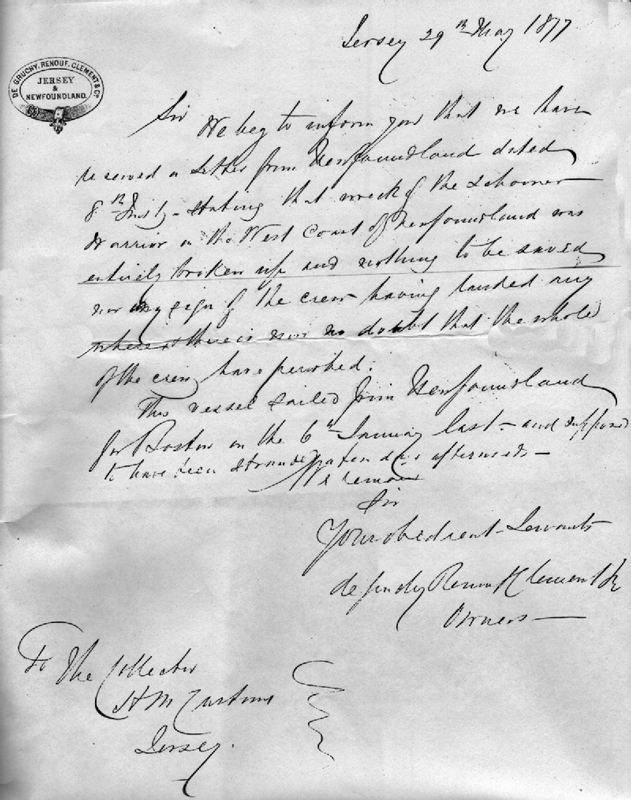 Jersey 29th May 1877
DE GRUCHY, RENOUF, CLEMENT & Co
JERSEY
&
NEWFOUNDLAND.
Sir We beg to inform you that we have
received a letter from Newfoundland dated
8th Inst, stating that wreck of the Schooner
Warrior on the West Coast of Newfoundland was
entirely broken up and nothing to be saved
nor any sign of the crew having landed any
where there is now no doubt that the whole
of the crew have perished.
This vessel sailed from Newfoundland
for Boston on the 6th January last - and supposed
to have been stranded days afterwards -
We remain
Sir
Your obedient Servants
de Gruchy Renouf Clement & Co
Owners
To The Collector
H M Customs
Jersey.